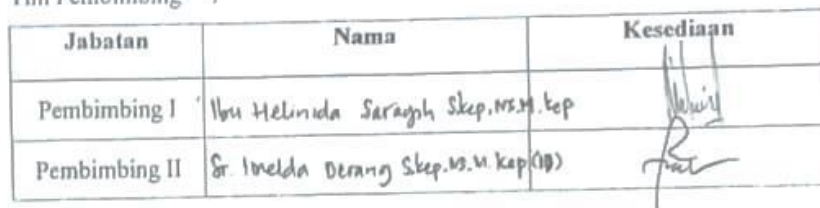 Tim Pembimbing :
Jabatan Nama Kesediaan
Pembimbing I Ibu Helinida Saragih Skep,NS.M.kep
Pembimbing II Sr. Imelda Derang Skep.NS.M.kep